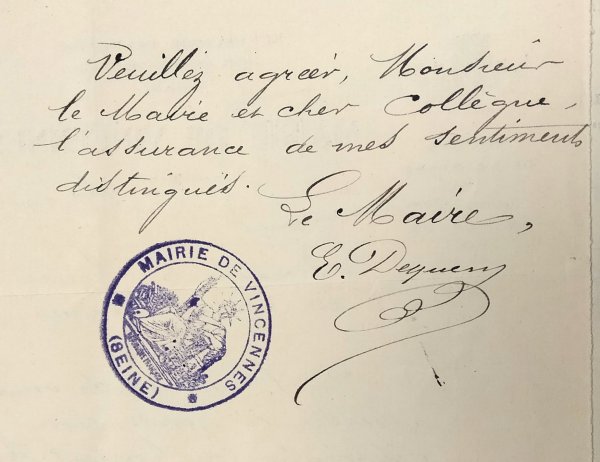 Veuillez agréer, Monsieur
le Maire et cher Collègue,
l'assurance de mes sentiments
distingués.
Le Maire,
E. Dequen
MAIRIE DE VINCENNES
(SEINE)